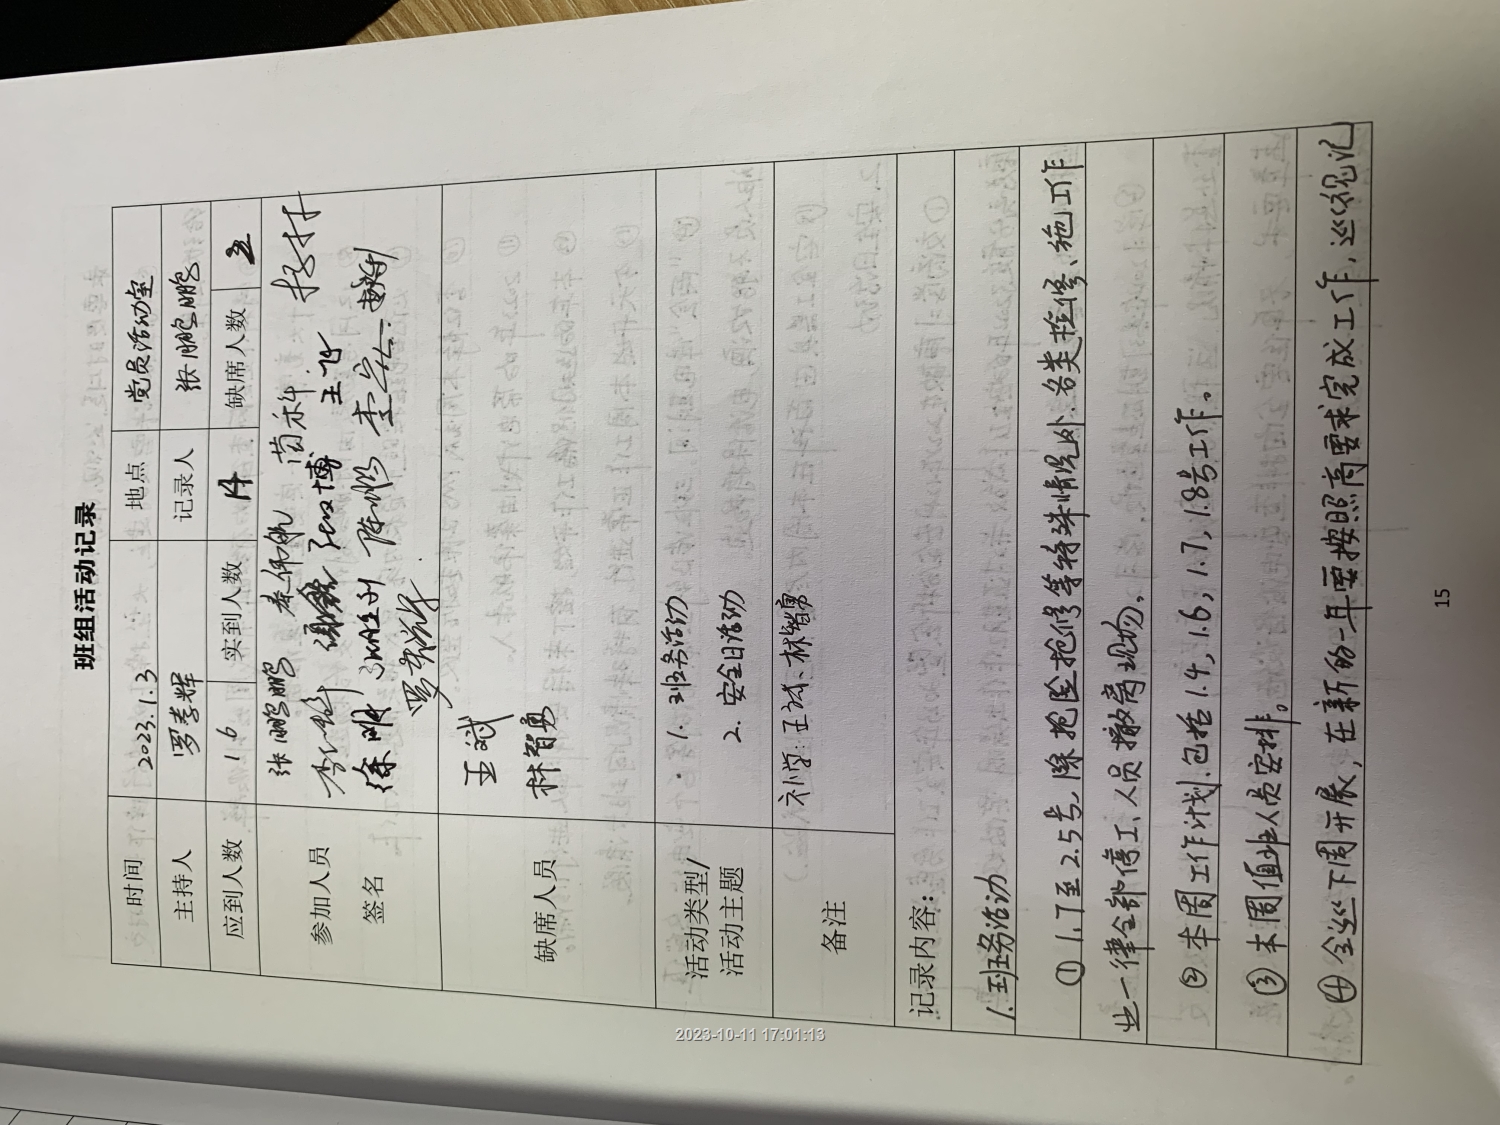 班组活动记录
时间 2023.1.3 地点 党员活动室
主持人 罗孝辉 记录人 张鹏鹏
应到人数 16 实到人数 14 缺席人数 2
参加人员 张鹏鹏 秦仰帆 苗科
签名 张博 王飞
徐明 陈鹏 李宏
缺席人员 王斌
林智勇
活动类型/ 1. 班务活动
活动主题 2. 安全日活动
备注 补学: 王斌、林智勇
记录内容:
1. 班务活动
① 1.1至2.5号,除抢险抢修等特殊情况外,各类检修、施工作
业一律全部停工、人员撤离现场。
② 本周工作计划,包括1.4,1.6,1.7,1.8号工作。
③ 本周值班人员安排。
④ 全巡下周开展,在新的一年要按照高要求完成工作,巡视记
15
2023-10-11 17:01:13